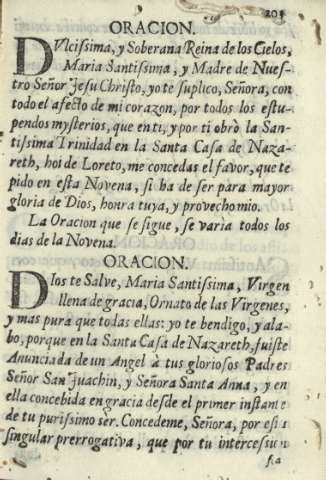 205
ORACION.
DVlcissima, y Soberana Reina de los Cielos,
Maria Santissima, y Madre de Nues-
tro Señor Jesu Christo, yo te suplico, Señora, con
todo el afecto de mi corazon, por todos los estu-
pendos mysterios, que en ti, y por ti obrò la San-
tissima Trinidad en la Santa Casa de Naza-
reth, hoi de Loreto, me concedas el favor, que te
pido en esta Novena, si ha de ser para mayor
gloria de Dios, honra tuya, y provecho mio.
La Oracion que se sigue, se varia todos los
dias de la Novena.
ORACION.
DIos te Salve, Maria Santissima, Virgen
llena de gracia, Ornato de las Virgenes,
y mas pura que todas ellas: yo te bendigo, y ala-
bo, porque en la Santa Casa de Nazareth, fuiste
Anunciada de un Angel à tus gloriosos Padres
Señor San Juachin, y Señora Santa Anna, y en
ella concebida en gracia desde el primer instante
de tu purissimo ser. Concedeme, Señora, por esta
singular prerrogativa, que por tu intercession